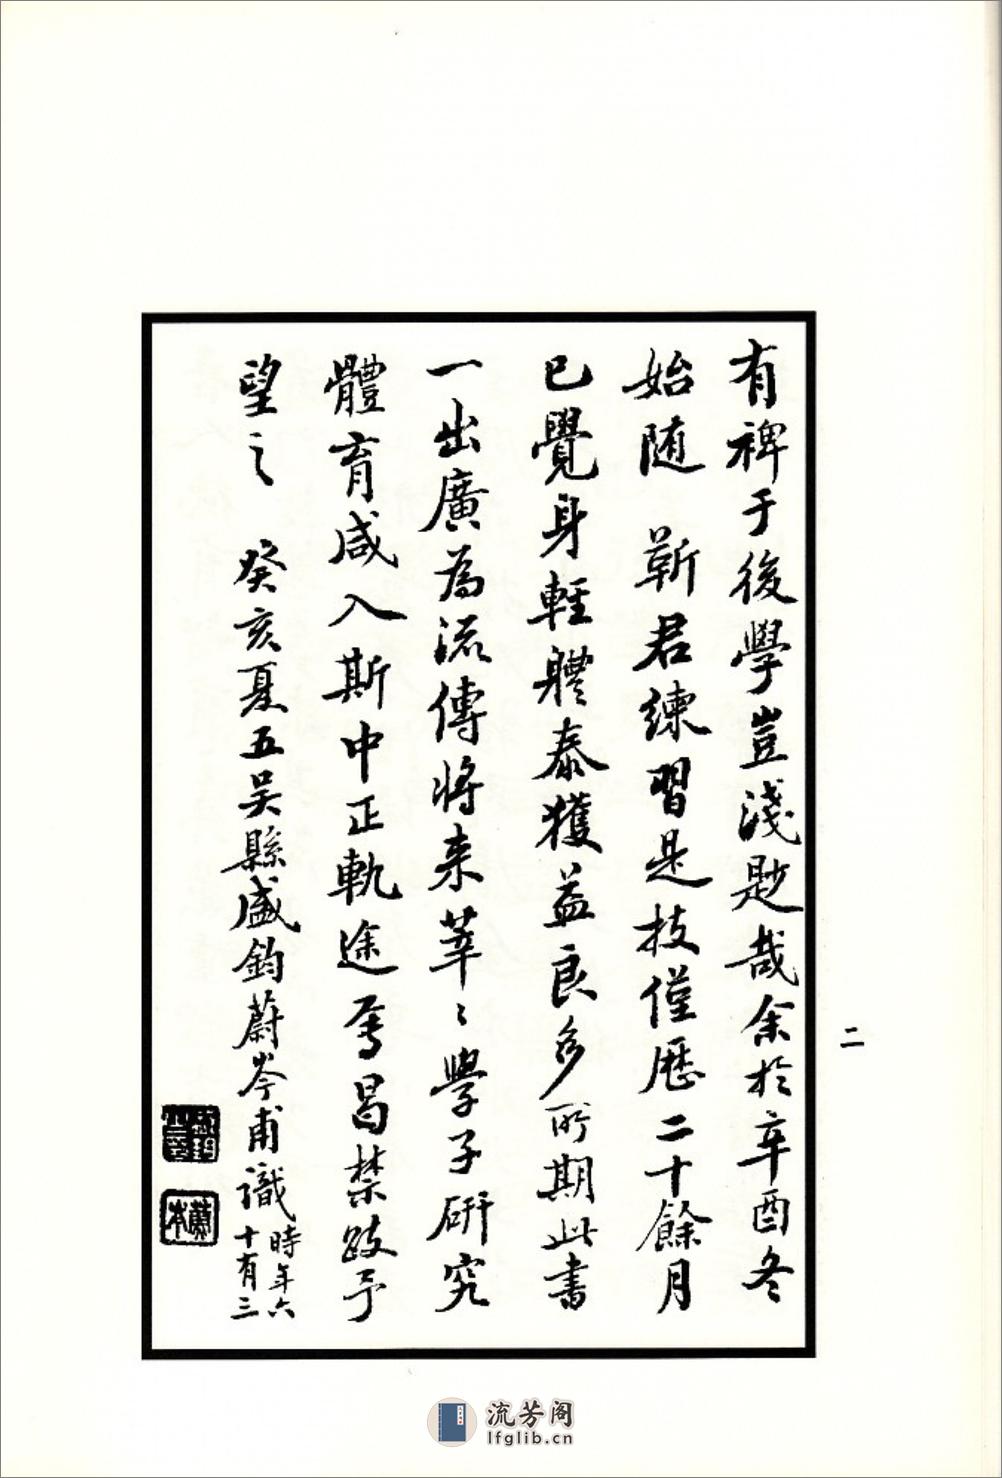 有裨于後學豈淺尟哉余於辛酉冬
始隨 靳君練習是技僅歷二十餘月
已覺身輕軆泰獲益良多所期此書
一出廣為流傳將来莘〻學子研究
體育咸入斯中正軌途焉曷禁跂予
望之 癸亥夏五吴縣盛鈞蔚岑甫識 時年六
十有三
二
流芳阁
lfglib.cn